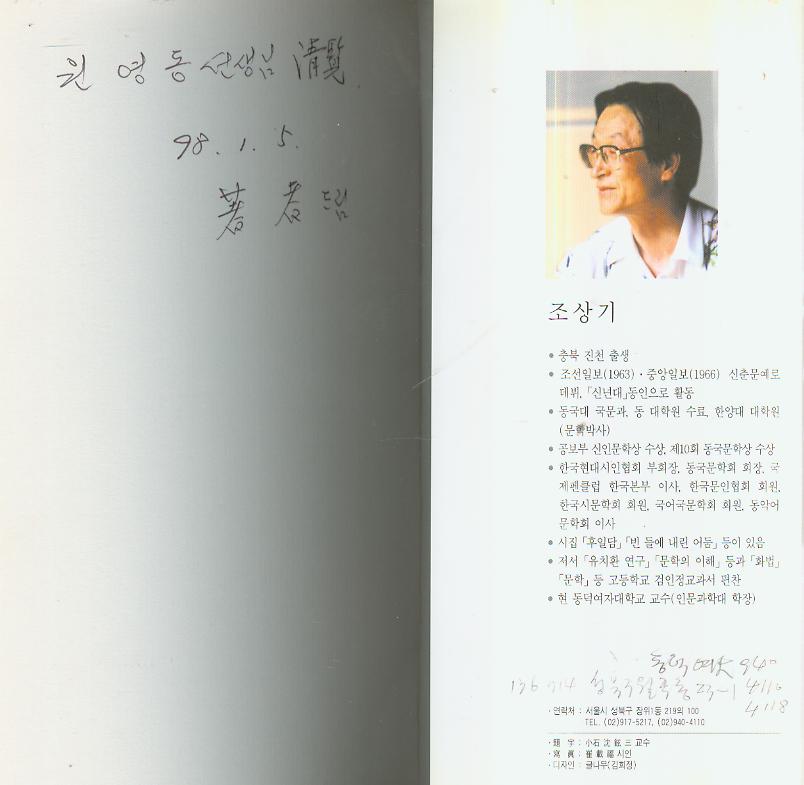 원 영 동 선생님 清覽
98. 1. 5.
著者 드림
조상기
● 충북 진천 출생
● 조선일보(1963)·중앙일보(1966) 신춘문예로
데뷔, 「신년대」동인으로 활동
● 동국대 국문과, 동 대학원 수료, 한양대 대학원
(문학박사)
● 공보부 신인문학상 수상, 제10회 동국문학상 수상
● 한국현대시인협회 부회장, 동국문학회 회장, 국
제펜클럽 한국본부 이사, 한국문인협회 회원,
한국시문학회 회원, 국어국문학회 회원, 동악어
문학회 이사
● 시집 「후일담」 「빈 들에 내린 어둠」 등이 있음
● 저서 「유치환 연구」 「문학의 이해」 등과 「화법」
「문학」 등 고등학교 검인정교과서 편찬
● 현 동덕여자대학교 교수(인문과학대 학장)
동덕여大 940
136-714 성북구 월곡동 23-1 4110
4118
·연락처 : 서울시 성북구 장위1동 219의 100
TEL. (02)917-5217, (02)940-4110
·題 字 : 小石 沈 鉉 三 교수
·寫 眞 : 崔 載 福 시인
·디자인 : 글나무(김희정)